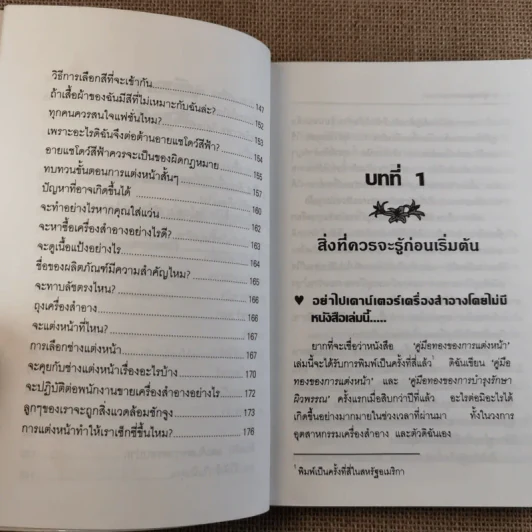 วิธีการเลือกสีที่จะเข้ากัน
ถ้าเสื้อผ้าของฉันมีสีที่ไม่เหมาะกับฉันล่ะ? 147
ทุกคนควรสนใจแฟชั่นไหม? 152
เพราะอะไรดิฉันจึงต่อต้านอายแชโดว์สีฟ้า? 153
อายแชโดว์สีฟ้าควรจะเป็นของผิดกฎหมาย 154
ทบทวนขั้นตอนการแต่งหน้าสั้นๆ 156
ปัญหาที่อาจเกิดขึ้นได้ 157
จะทำอย่างไรหากคุณใส่แว่น 160
จะหาซื้อเครื่องสำอางอย่างไรดี? 162
จะดูเนื้อแป้งอย่างไร 163
ชื่อของผลิตภัณฑ์มีความสำคัญไหม? 164
จะทาบลัชตรงไหน? 166
ถุงเครื่องสำอาง 166
จะแต่งหน้าที่ไหน? 167
การเลือกช่างแต่งหน้า 167
จะคุยกับช่างแต่งหน้าเรื่องอะไรบ้าง 170
จะปฏิบัติต่อพนักงานขายเครื่องสำอางอย่างไร 172
ลูกๆของเราจะถูกสิ่งแวดล้อมชักจูง 173
การแต่งหน้าทำให้เราเซ็กซี่ขึ้นไหม? 176
บทที่ 1
สิ่งที่ควรจะรู้ก่อนเริ่มต้น
♥ อย่าไปเคาน์เตอร์เครื่องสำอางโดยไม่มี
หนังสือเล่มนี้.....
ยากที่จะเชื่อว่าหนังสือ 'คู่มือทองของการแต่งหน้า'
เล่มนี้จะได้รับการพิมพ์เป็นครั้งที่สี่แล้ว¹ ดิฉันเขียน 'คู่มือ
ทองของการแต่งหน้า' และ 'คู่มือทองของการบำรุงรักษา
ผิวพรรณ' ครั้งแรกเมื่อสิบกว่าปีที่แล้ว อะไรต่อมิอะไรได้
เกิดขึ้นอย่างมากมายในช่วงเวลาที่ผ่านมา ทั้งในวงการ
อุตสาหกรรมเครื่องสำอาง และตัวดิฉันเอง
¹ พิมพ์เป็นครั้งที่สี่ในสหรัฐอเมริกา